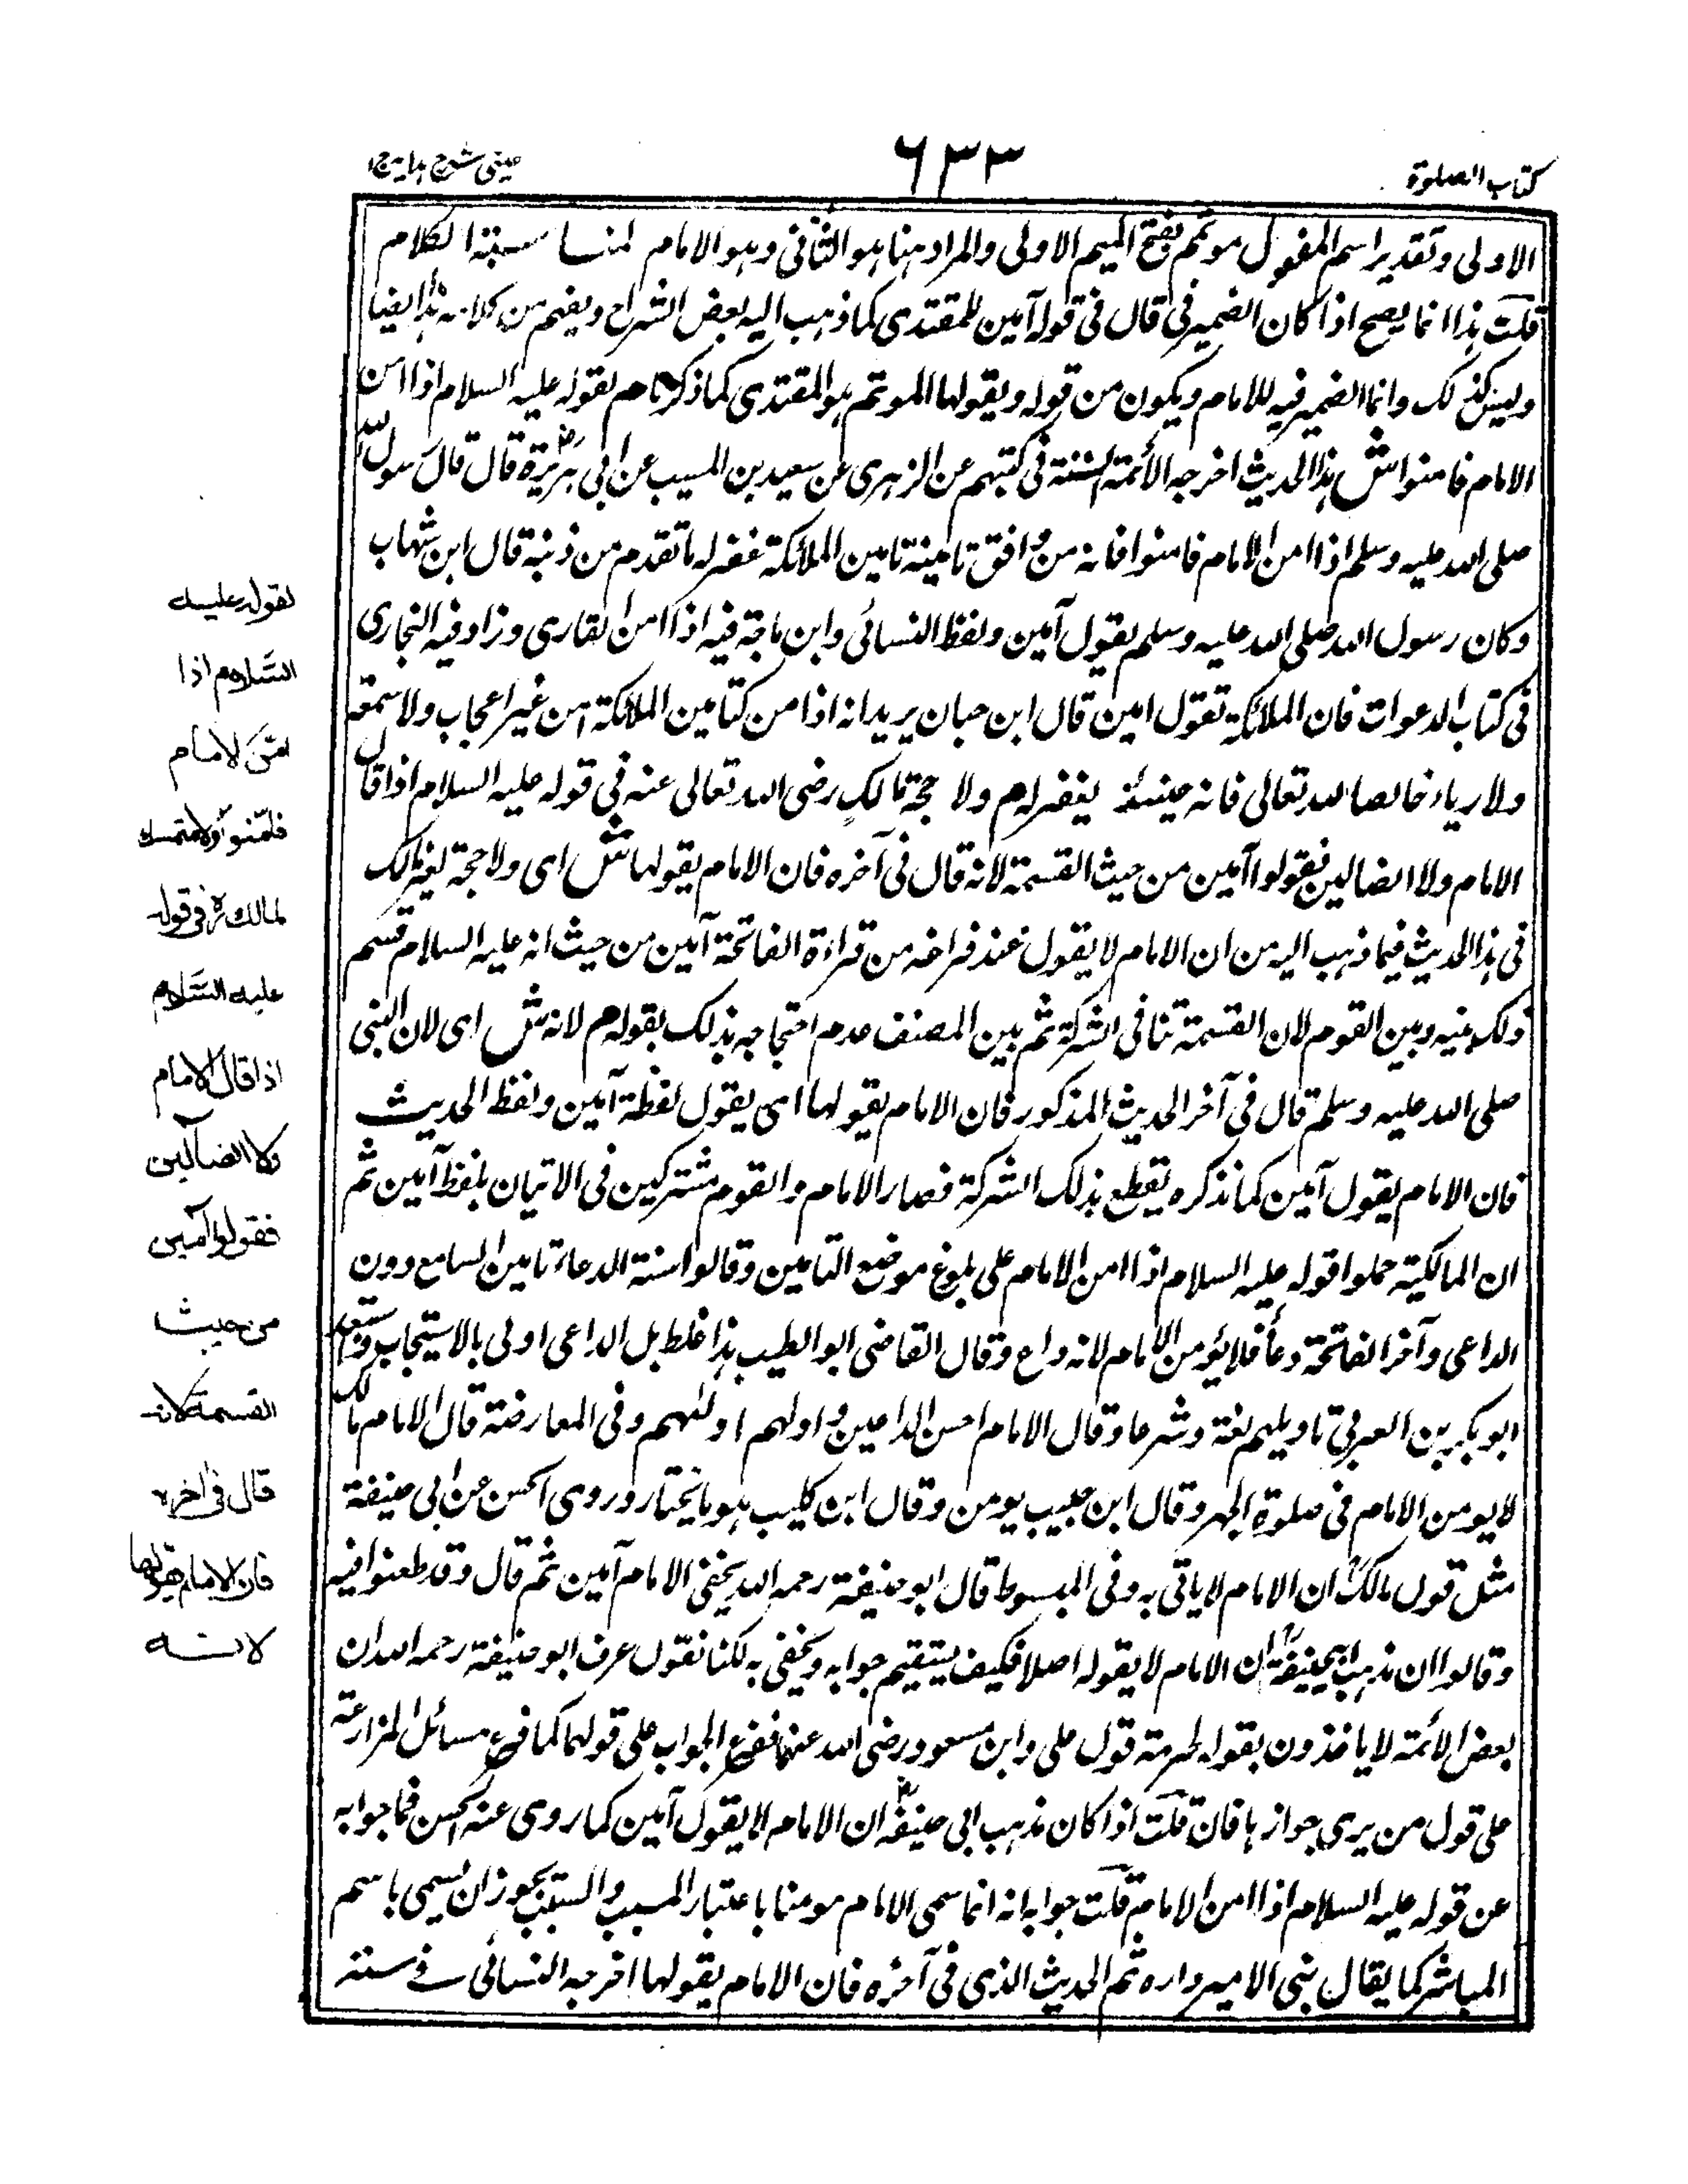 كتاب الصلوة
٦٣٣
عينى شرح هداية ج١
الاولى وتقدير اسم المفعول موتمم بفتح الميم الاولى والمراد ههنا هو الثانى وهو الامام لمناسبة الكلام
قلت هذا انما يصح اذا كان الضمير فى قال فى قوله آمين للمقتدى كما ذهب اليه بعض الشراح ويفهم من كلامه هذا ايضا
وليس كذلك وانما الضمير فيه للامام ويكون من قوله ويقولها الموتم هو المقتدى كما ذكرنا م لقوله عليه السلام اذا امن
الامام فامنوا ش هذا الحديث اخرجه الأئمة الستة فى كتبهم عن الزهرى عن سعيد بن المسيب عن ابى هريرة رض قال قال رسول الله
صلى الله عليه وسلم اذا امن الامام فامنوا فانه من وافق تامينه تامين الملائكة غفر له ما تقدم من ذنبه قال ابن شهاب
وكان رسول الله صلى الله عليه وسلم يقول آمين ولفظ النسائى وابن ماجة فيه اذا امن القارى وزاد فيه البخارى
فى كتاب الدعوات فان الملائكة تقول امين قال ابن حبان يريد انه اذا من كتامين الملائكة من غير اعجاب ولا سمعة
ولا رياء خالصا لله تعالى فانه حينئذ يغفر له م ولا حجة لمالك رضى الله تعالى عنه فى قوله عليه السلام اذا قال
الامام ولا الضالين فقولوا آمين من حيث القسمة لانه قال فى آخره فان الامام يقولها ش اى ولا حجة لمالك
فى هذا الحديث فيما ذهب اليه من ان الامام لا يقول عند فراغه من قراءة الفاتحة آمين من حيث انه عليه السلام قسم
ذلك بينه وبين القوم لان القسمة تنافى الشركة ثم بين المصنف عدم احتجاجه بذلك بقوله م لانه ش اى لان النبى
صلى الله عليه وسلم قال فى آخر الحديث المذكور فان الامام يقولها اى يقول لفظة آمين ولفظ الحديث
فان الامام يقول آمين كما نذكره يقطع بذلك الشركة فصار الامام والقوم مشتركين فى الاتيان بلفظ آمين ثم
ان المالكية حملوا قوله عليه السلام اذا امن الامام على بلوغ موضع التامين وقالوا سنة الدعاء تامين السامع دون
الداعى وآخر الفاتحة دعأ فلا يؤمن الامام لانه داع وقال القاضى ابو الطيب هذا غلط بل الداعى اولى بالاستيجاب واستبعد
ابو بكر بن العربي تاويلهم لغة وشرعا وقال الامام احسن الداعين واولهم اولٰهم وفى المعارضة قال الامام مالك
لا يومن الامام فى صلوة الجهر وقال ابن حبيب يومن وقال ابن كليب هو بالخيار وروى الحسن عن ابى حنيفة
مثل قول مالك ان الامام لا ياتى به وفى المبسوط قال ابو حنيفة رحمه الله يخفى الامام آمين ثم قال وقد طعنوا فيه
وقالوا ان مذهب ابيحنيفة ان الامام لا يقوله اصلا فكيف يستقيم جوابه ويخفى به لكنا نقول عرف ابو حنيفة رحمه الله ان
بعض الأئمة لا ياخذون بقوله لحرمة قول على وابن مسعود رضى الله عنهما ففرع الجواب على قولهما كما فرع مسائل المزارعة
على قول من يرى جوازها فان قلت اذا كان مذهب ابى حنيفة ان الامام لا يقول آمين كما روى عنه الحسن فما جوابه
عن قوله عليه السلام اذا امن الامام قلت جوابه انه انما سمى الامام مومنا باعتبار المسبب والمسبب يجوز ان يسمى باسم
المباشر كما يقال بنى الامير داره ثم الحديث الذى فى آخره فان الامام يقولها اخرجه النسائى فى سننه
لقوله عليه
السَّلام اذا
امّن الامام
فامّنوا ولا متمسك
لمالك رح فى قوله
عليه السَّلام
اذا قال الامام
ولا الضآلين
فقولوا آمين
من حيث
القسمة لانه
قال فى اخره
فان الامام يقولها
لانه